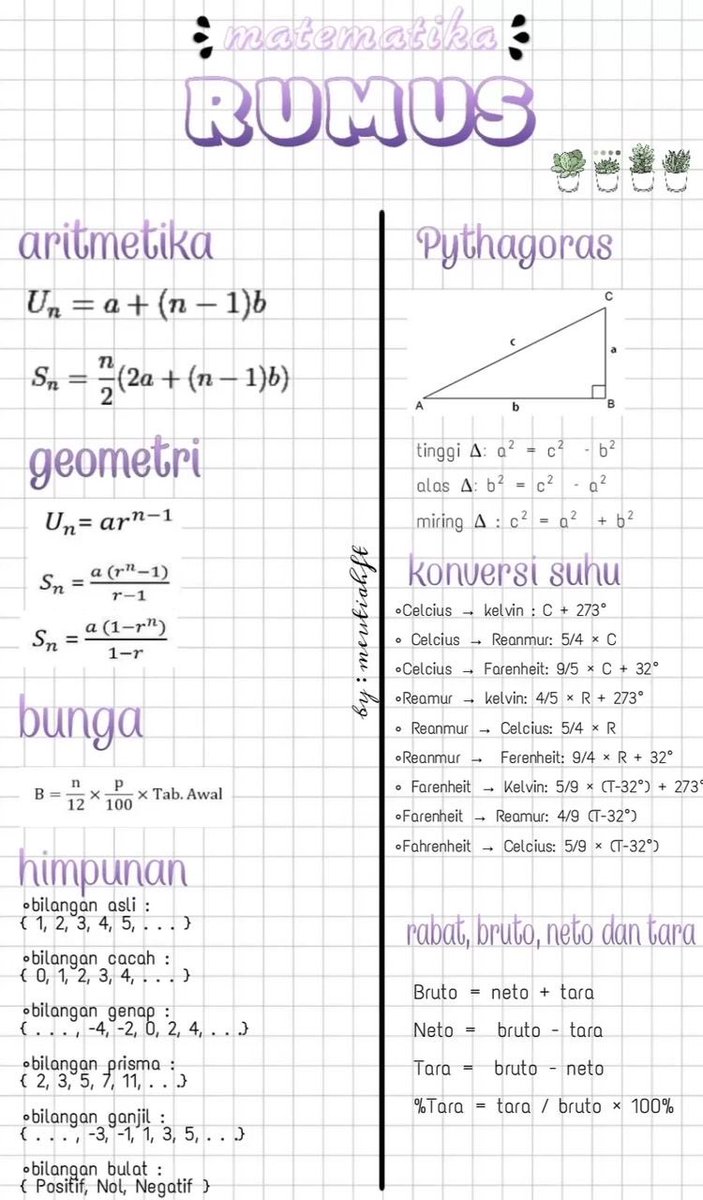 matematika
RUMUS
aritmetika
Uₙ = a + (n − 1)b
Sₙ = n/2 (2a + (n − 1)b)
geometri
Uₙ= arⁿ⁻¹
Sₙ = a (rⁿ−1) / r−1
Sₙ = a (1−rⁿ) / 1−r
bunga
B = n/12 × p/100 × Tab. Awal
himpunan
∘bilangan asli :
{ 1, 2, 3, 4, 5, . . . }
∘bilangan cacah :
{ 0, 1, 2, 3, 4, . . . }
∘bilangan genap :
{ . . . , -4, -2, 0, 2, 4, . . .}
∘bilangan prisma :
{ 2, 3, 5, 7, 11, . . .}
∘bilangan ganjil :
{ . . . , -3, -1, 1, 3, 5, . . .}
∘bilangan bulat :
{ Positif, Nol, Negatif }
by : mentiahft
Pythagoras
C
c
a
A
b
B
tinggi Δ: a² = c² - b²
alas Δ: b² = c² - a²
miring Δ : c² = a² + b²
konversi suhu
∘Celcius → kelvin : C + 273°
∘ Celcius → Reanmur: 5/4 × C
∘Celcius → Farenheit: 9/5 × C + 32°
∘Reamur → kelvin: 4/5 × R + 273°
∘ Reanmur → Celcius: 5/4 × R
∘Reanmur → Ferenheit: 9/4 × R + 32°
∘ Farenheit → Kelvin: 5/9 × (T-32°) + 273°
∘Farenheit → Reamur: 4/9 (T-32°)
∘Fahrenheit → Celcius: 5/9 × (T-32°)
rabat, bruto, neto dan tara
Bruto = neto + tara
Neto = bruto - tara
Tara = bruto - neto
%Tara = tara / bruto × 100%